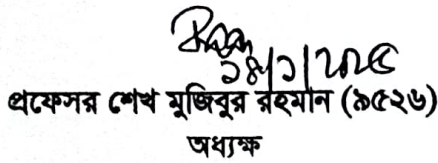 ১৪/১/২০২৫
প্রফেসর শেখ মুজিবুর রহমান (৯৫২৬)
অধ্যক্ষ